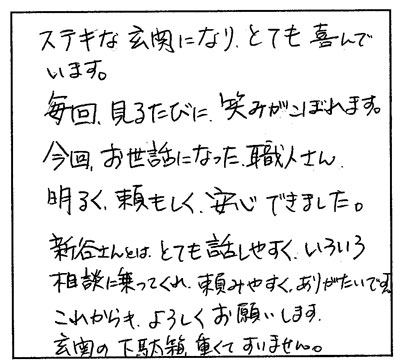 ステキな玄関になり、とても喜んで
います。
毎回、見るたびに、笑みがこぼれます。
今回、お世話になった、職人さん、
明るく、頼もしく、安心できました。
新谷さんとは、とても話しやすく、いろいろ
相談に乗ってくれ、頼みやすく、ありがたいです。
これからも、よろしくお願いします。
玄関の下駄箱、重くてすいません。